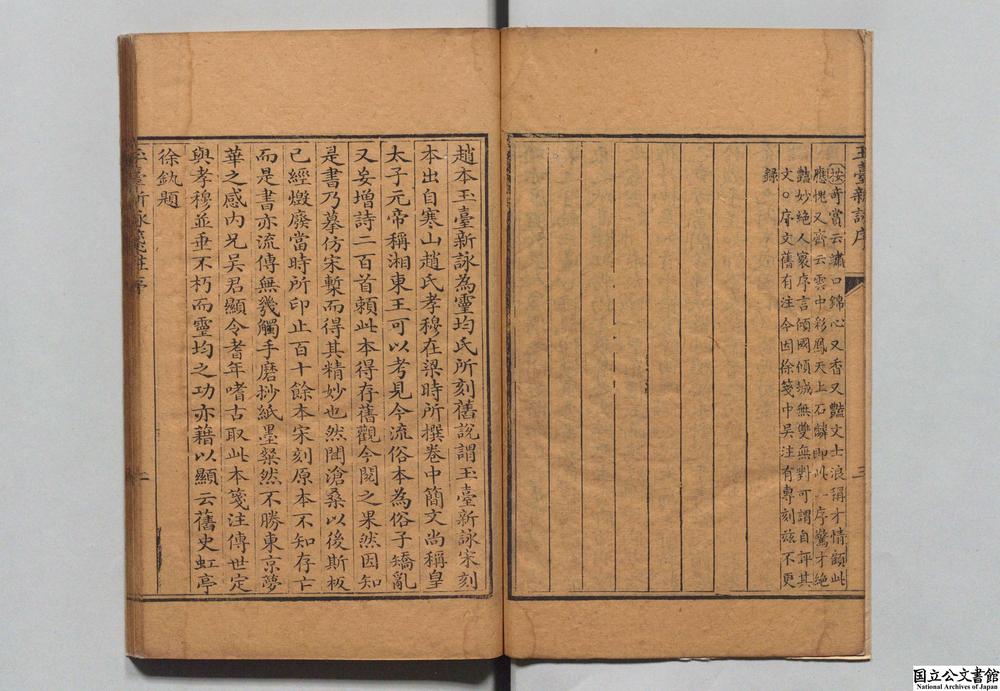 玉臺新詠序
三
〔按〕奇賞云繡口錦心又香又豔文士浪稱才情顧此
應愧又齊云雲中彩鳳天上石麟即此一序驚才絕
豔妙絕人寰序言傾國傾城無雙無對可謂自評其
文○序文舊有注今因徐箋中吳注有專刻茲不更
錄
趙本玉臺新詠為靈均氏所刻舊說謂玉臺新詠宋刻
本出自寒山趙氏孝穆在梁時所撰卷中簡文尚稱皇
太子元帝稱湘東王可以考見今流俗本為俗子矯亂
又妄增詩二百首賴此本得存舊觀今閱之果然因知
是書乃摹仿宋槧而得其精妙也然閱滄桑以後斯板
已經燬廢當時所印止百十餘本宋刻原本不知存亡
而是書亦流傳無幾觸手磨挱紙墨粲然不勝東京夢
華之感內兄吳君顯令耆年嗜古取此本箋注傳世定
與孝穆並垂不朽而靈均之功亦藉以顯云舊史虹亭
徐釚題
玉臺新詠箋註序
二
国立公文書館
National Archives of Japan